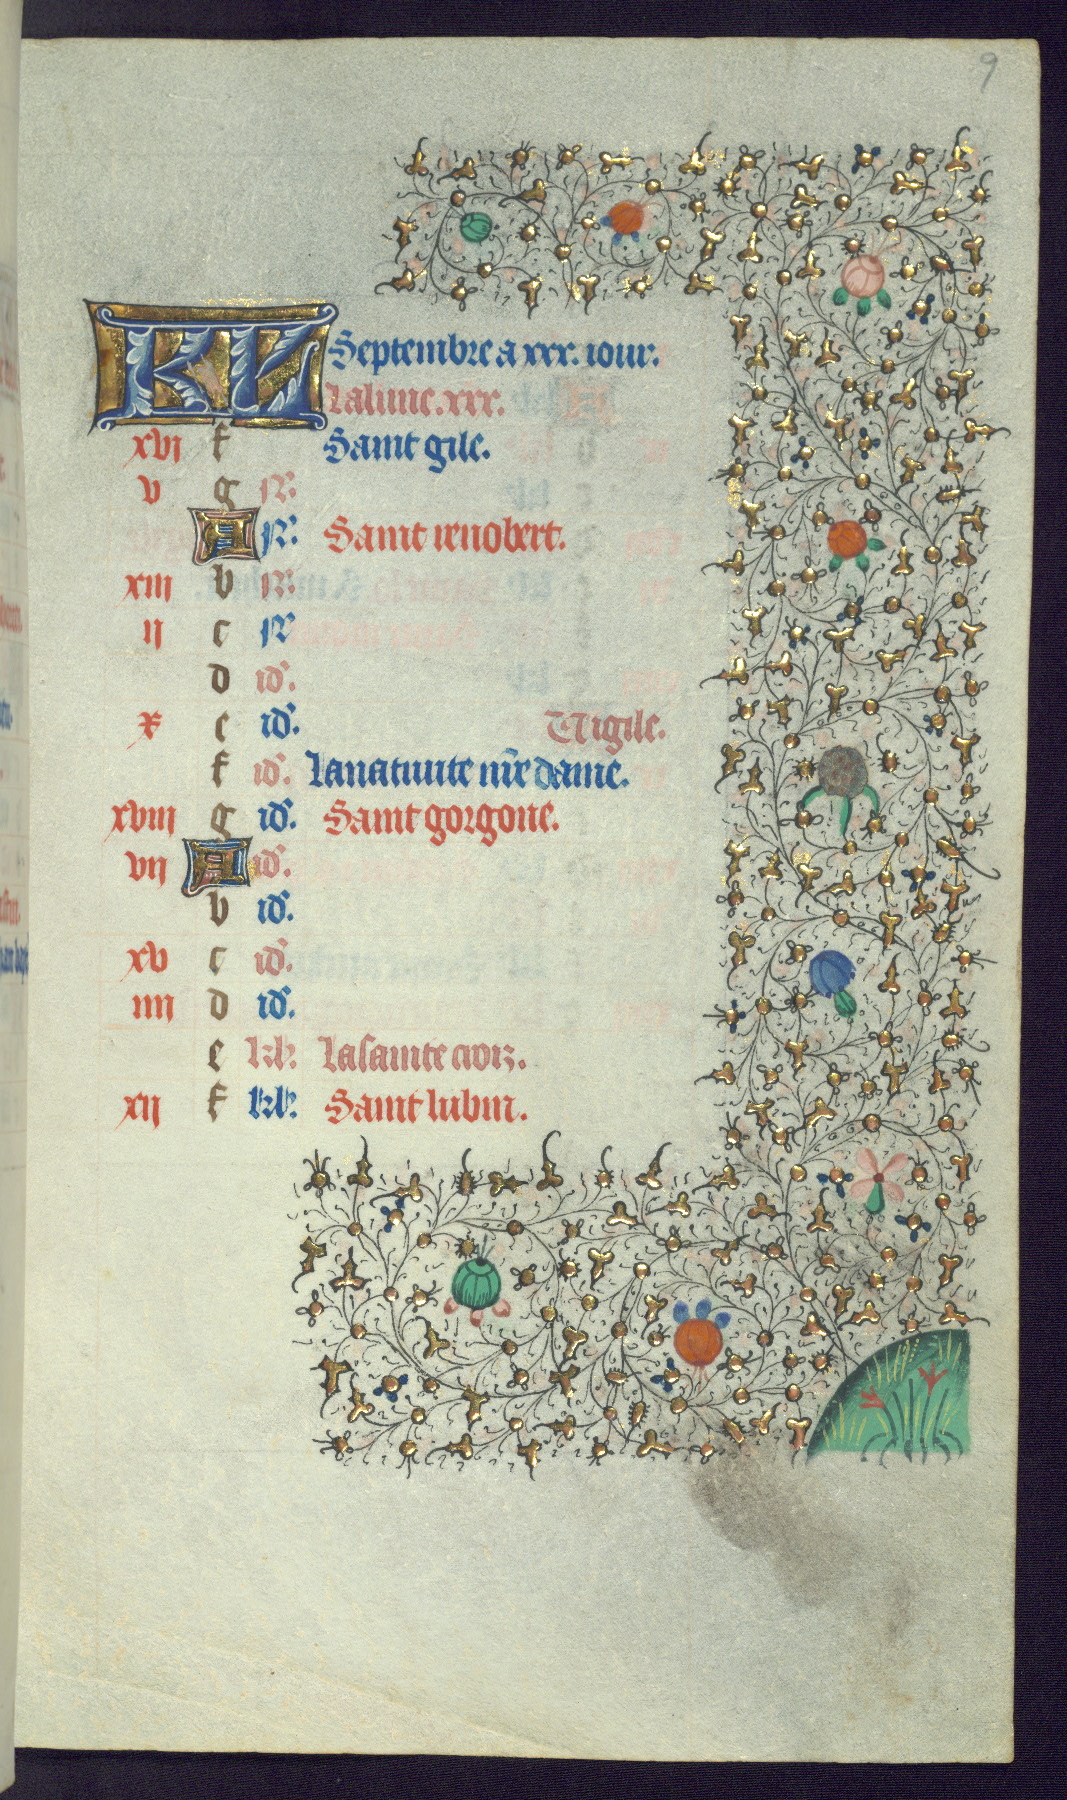 9
KL Septembre a xxx. iour.
La lune. xxx.
xvi f Saint gile.
v g N.
A N. Saint renobert.
xiii b N.
ii c N.
d id.
x e id. Vigile.
f id. La natiuite nr̃e dame.
xviii g id. Saint gorgone.
vii A id.
b id.
xv c id.
iiii d id.
e kl. La sainte croiz.
xii f kl. Saint lubin.